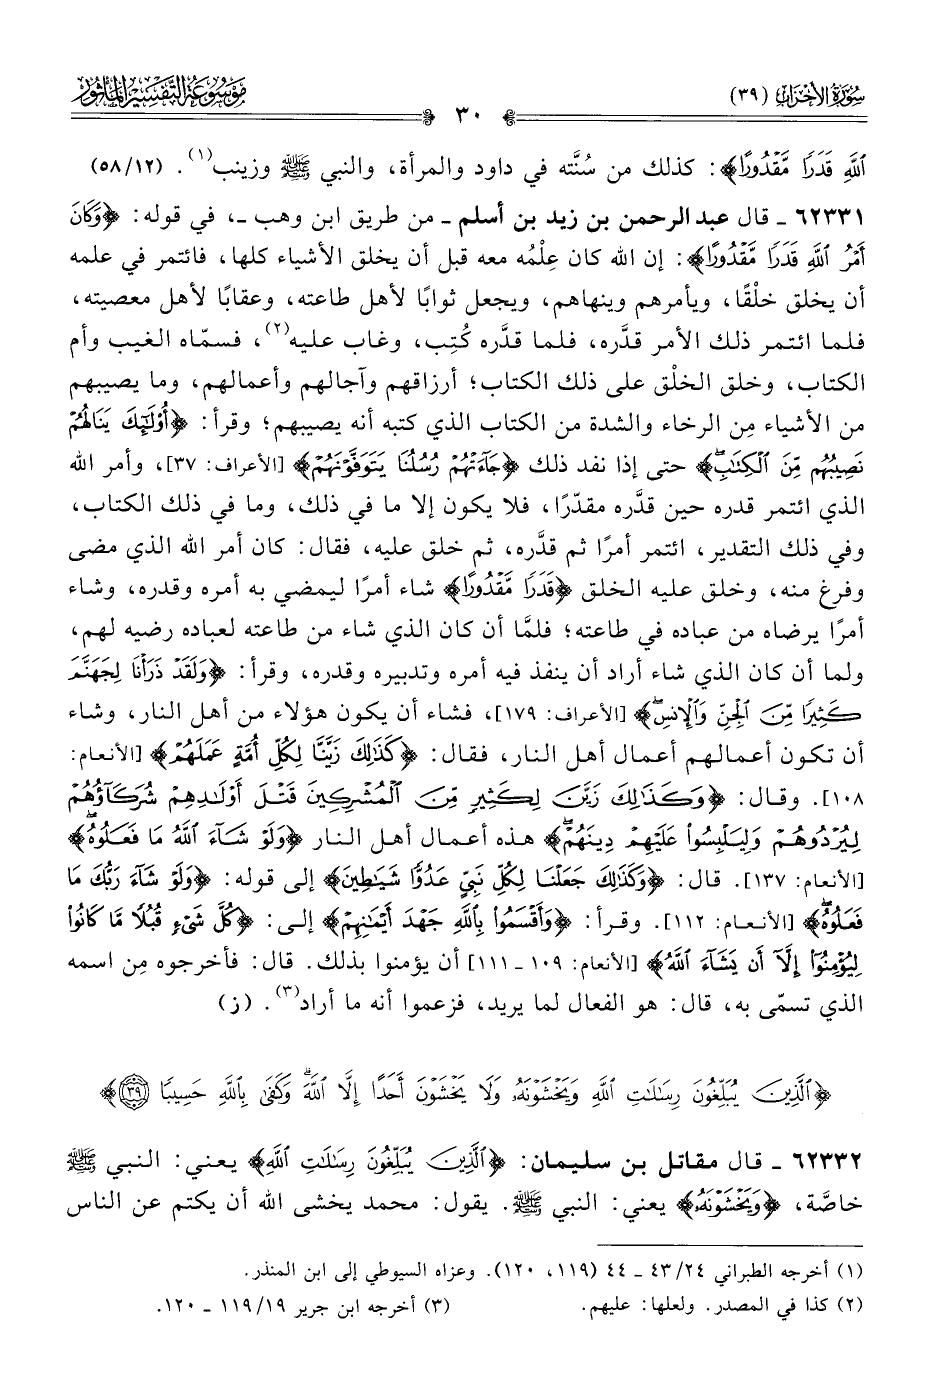 سُورَةُ الأَحْزَابِ (٣٩)
٣٠
مَوْسُوعَةُ التَّفْسِيرِ المَأْثُورِ
اللَّهِ قَدَرًا مَّقْدُورًا﴾: كذلك من سُنَّته في داود والمرأة، والنبي ﷺ وزينب(١). (١٢/٥٨)
٦٢٣٣١ ـ قال عبد الرحمن بن زيد بن أسلم ـ من طريق ابن وهب ـ، في قوله: ﴿وَكَانَ
أَمْرُ اللَّهِ قَدَرًا مَّقْدُورًا﴾: إن الله كان عِلْمُه معه قبل أن يخلق الأشياء كلها، فائتمر في علمه
أن يخلق خلْقًا، ويأمرهم وينهاهم، ويجعل ثوابًا لأهل طاعته، وعقابًا لأهل معصيته،
فلما ائتمر ذلك الأمر قدَّره، فلما قدَّره كُتِب، وغاب عليه(٢)، فسمّاه الغيب وأم
الكتاب، وخلق الخلْق على ذلك الكتاب؛ أرزاقهم وآجالهم وأعمالهم، وما يصيبهم
من الأشياء مِن الرخاء والشدة من الكتاب الذي كتبه أنه يصيبهم؛ وقرأ: ﴿أُوْلَٰٓئِكَ يَنَالُهُمْ
نَصِيبُهُم مِّنَ ٱلْكِتَٰبِ﴾ حتى إذا نفد ذلك ﴿جَآءَتْهُمْ رُسُلُنَا يَتَوَفَّوْنَهُمْ﴾ [الأعراف: ٣٧]، وأمر الله
الذي ائتمر قدره حين قدَّره مقدّرًا، فلا يكون إلا ما في ذلك، وما في ذلك الكتاب،
وفي ذلك التقدير، ائتمر أمرًا ثم قدَّره، ثم خلق عليه، فقال: كان أمر الله الذي مضى
وفرغ منه، وخلق عليه الخلق ﴿قَدَرًا مَّقْدُورًا﴾ شاء أمرًا ليمضي به أمره وقدره، وشاء
أمرًا يرضاه من عباده في طاعته؛ فلمَّا أن كان الذي شاء من طاعته لعباده رضيه لهم،
ولما أن كان الذي شاء أراد أن ينفذ فيه أمره وتدبيره وقدره، وقرأ: ﴿وَلَقَدْ ذَرَأْنَا لِجَهَنَّمَ
كَثِيرًا مِّنَ ٱلْجِنِّ وَٱلْإِنسِ﴾ [الأعراف: ١٧٩]، فشاء أن يكون هؤلاء من أهل النار، وشاء
أن تكون أعمالهم أعمال أهل النار، فقال: ﴿كَذَٰلِكَ زَيَّنَّا لِكُلِّ أُمَّةٍ عَمَلَهُمْ﴾ [الأنعام:
١٠٨]. وقال: ﴿وَكَذَٰلِكَ زَيَّنَ لِكَثِيرٍ مِّنَ ٱلْمُشْرِكِينَ قَتْلَ أَوْلَٰدِهِمْ شُرَكَآؤُهُمْ
لِيُرْدُوهُمْ وَلِيَلْبِسُواْ عَلَيْهِمْ دِينَهُمْ﴾ هذه أعمال أهل النار ﴿وَلَوْ شَآءَ ٱللَّهُ مَا فَعَلُوهُ﴾
[الأنعام: ١٣٧]. قال: ﴿وَكَذَٰلِكَ جَعَلْنَا لِكُلِّ نَبِيٍّ عَدُوًّا شَيَٰطِينَ﴾ إلى قوله: ﴿وَلَوْ شَآءَ رَبُّكَ مَا
فَعَلُوهُ﴾ [الأنعام: ١١٢]. وقرأ: ﴿وَأَقْسَمُواْ بِٱللَّهِ جَهْدَ أَيْمَٰنِهِمْ﴾ إلى: ﴿كُلَّ شَيْءٍ قُبُلًا مَّا كَانُواْ
لِيُؤْمِنُوٓاْ إِلَّآ أَن يَشَآءَ ٱللَّهُ﴾ [الأنعام: ١٠٩ ـ ١١١] أن يؤمنوا بذلك. قال: فأخرجوه مِن اسمه
الذي تسمّى به، قال: هو الفعال لما يريد، فزعموا أنه ما أراد(٣). (ز)
﴿ٱلَّذِينَ يُبَلِّغُونَ رِسَٰلَٰتِ ٱللَّهِ وَيَخْشَوْنَهُۥ وَلَا يَخْشَوْنَ أَحَدًا إِلَّا ٱللَّهَ ۗ وَكَفَىٰ بِٱللَّهِ حَسِيبًا ۝٣٩﴾
٦٢٣٣٢ ـ قال مقاتل بن سليمان: ﴿ٱلَّذِينَ يُبَلِّغُونَ رِسَٰلَٰتِ ٱللَّهِ﴾ يعني: النبي ﷺ
خاصَّة، ﴿وَيَخْشَوْنَهُۥ﴾ يعني: النبي ﷺ. يقول: محمد يخشى الله أن يكتم عن الناس
(١) أخرجه الطبراني ٢٤/٤٣ ـ ٤٤ (١١٩، ١٢٠). وعزاه السيوطي إلى ابن المنذر.
(٢) كذا في المصدر. ولعلها: عليهم.
(٣) أخرجه ابن جرير ١٩/١١٩ ـ ١٢٠.